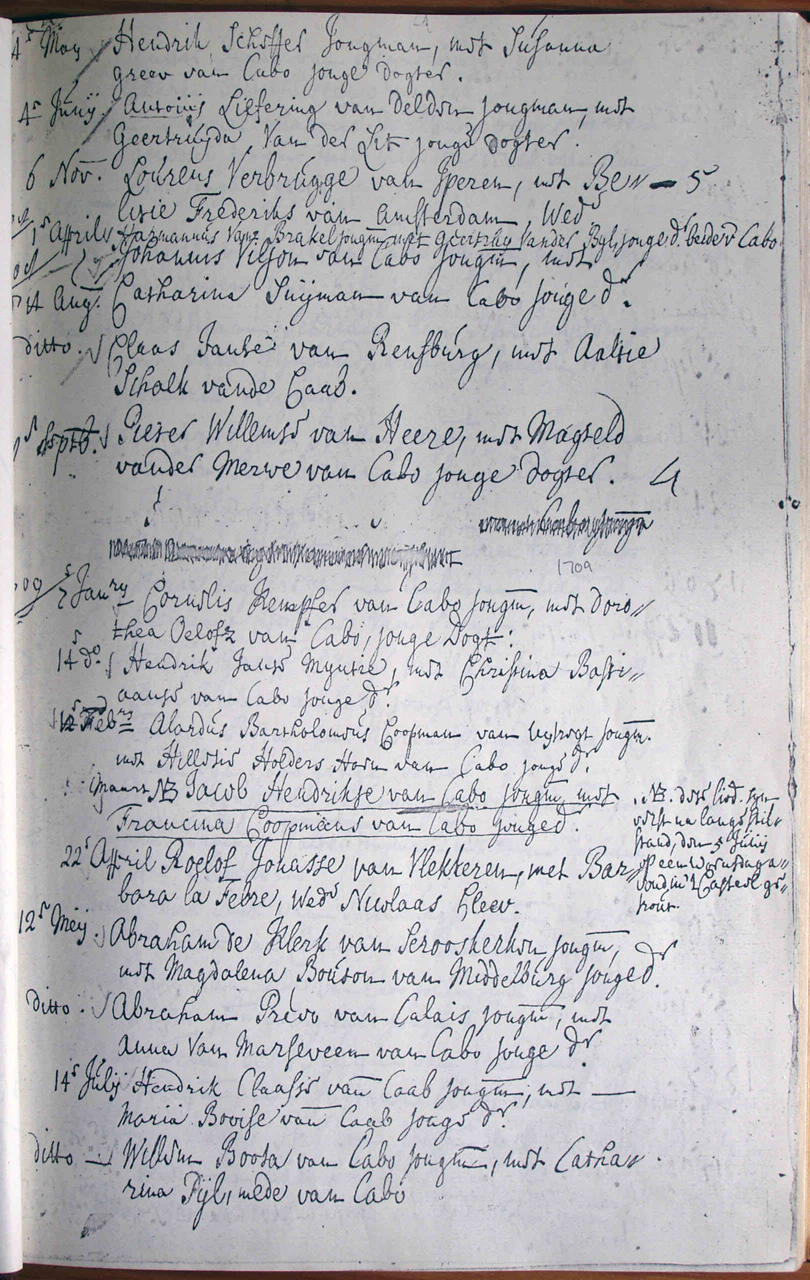 4s May Hendrik Schoffer Jongman, met Susanna
greev van Cabo jonge dogter.
4s Junij Antonij Liefering van Deldon jongman, met
Geertruijda Van der Lit jonge dogter.
6 Nov. Lourens Verbrugge van Iperen, met Bea- 5
trixie Frederiks van Amsterdam, Weds
1s Aprily Harmannus Van Brakel jongm met Geertruy Vander Byl, jonge dr. beide v Cabo
Johannis Vilson van Cabo jongm, met
14 Aug. Catharina Snijman van Cabo jonge dr.
ditto. Claas Janse van Rensburg, met Aaltie
Schalk vande Caab.
Septb. Pieter Willemse van Heere, met Magteld
vander Merwe van Cabo jonge dogter. 4
1709
Janry Cornelis Kempfer van Cabo jongm, met Doro„
thea Oelofz van Cabo, jonge dogt:
14 do. Hendrik Janse Myntie, met Christina Basti„
aanse van Cabo jonge dr.
12 Febry Alardus Bartholomeus Coopman van jongm.
met Holders Horn van Cabo jonge dr.
Maart NB Jacob Hendrikse van Cabo jongm, met
Francina Coopmans van Cabo jonged.
NB. dese
eerst na lange stil„
stand, den 5 Julij
op een woensdag a„
vond in 't Casteel ge„
trout.
22s April Roelof Jonasse van Vlekkeren, met Bar„
bara la Febre, Weds Nicolaas Cleev.
12s Meij Abraham de Klerk van Serooskerken jongm,
met Magdalena Bouton van Middelburg jonged.
ditto. Abraham Prévo van Calais jongm, met
Anna Van Marseveen van Cabo jonge dr
14s Julij Hendrik Claasse van Caab jongm, met —
Maria Bovise van Caab jonge dr.
ditto — Willem Boota van Cabo jongm, met Catha„
rina Pijl, mede van Cabo